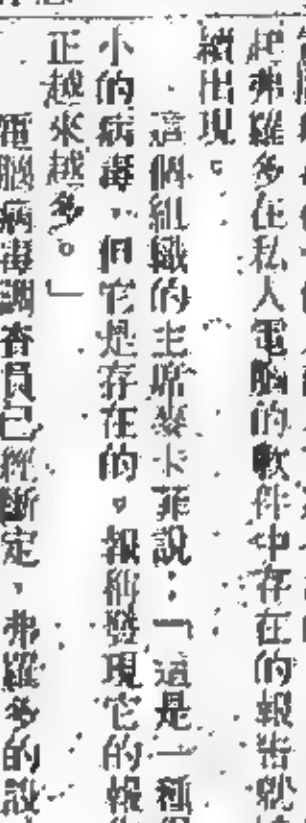 起弗羅多在私人電腦的軟件中存在的報告就
續出現。
這個組織的主席麥卡菲說：「這是一種
小的病毒，但它是存在的，報稱發現它的報
正越來越多。」
電腦病毒調查員已經斷定，弗羅多的設